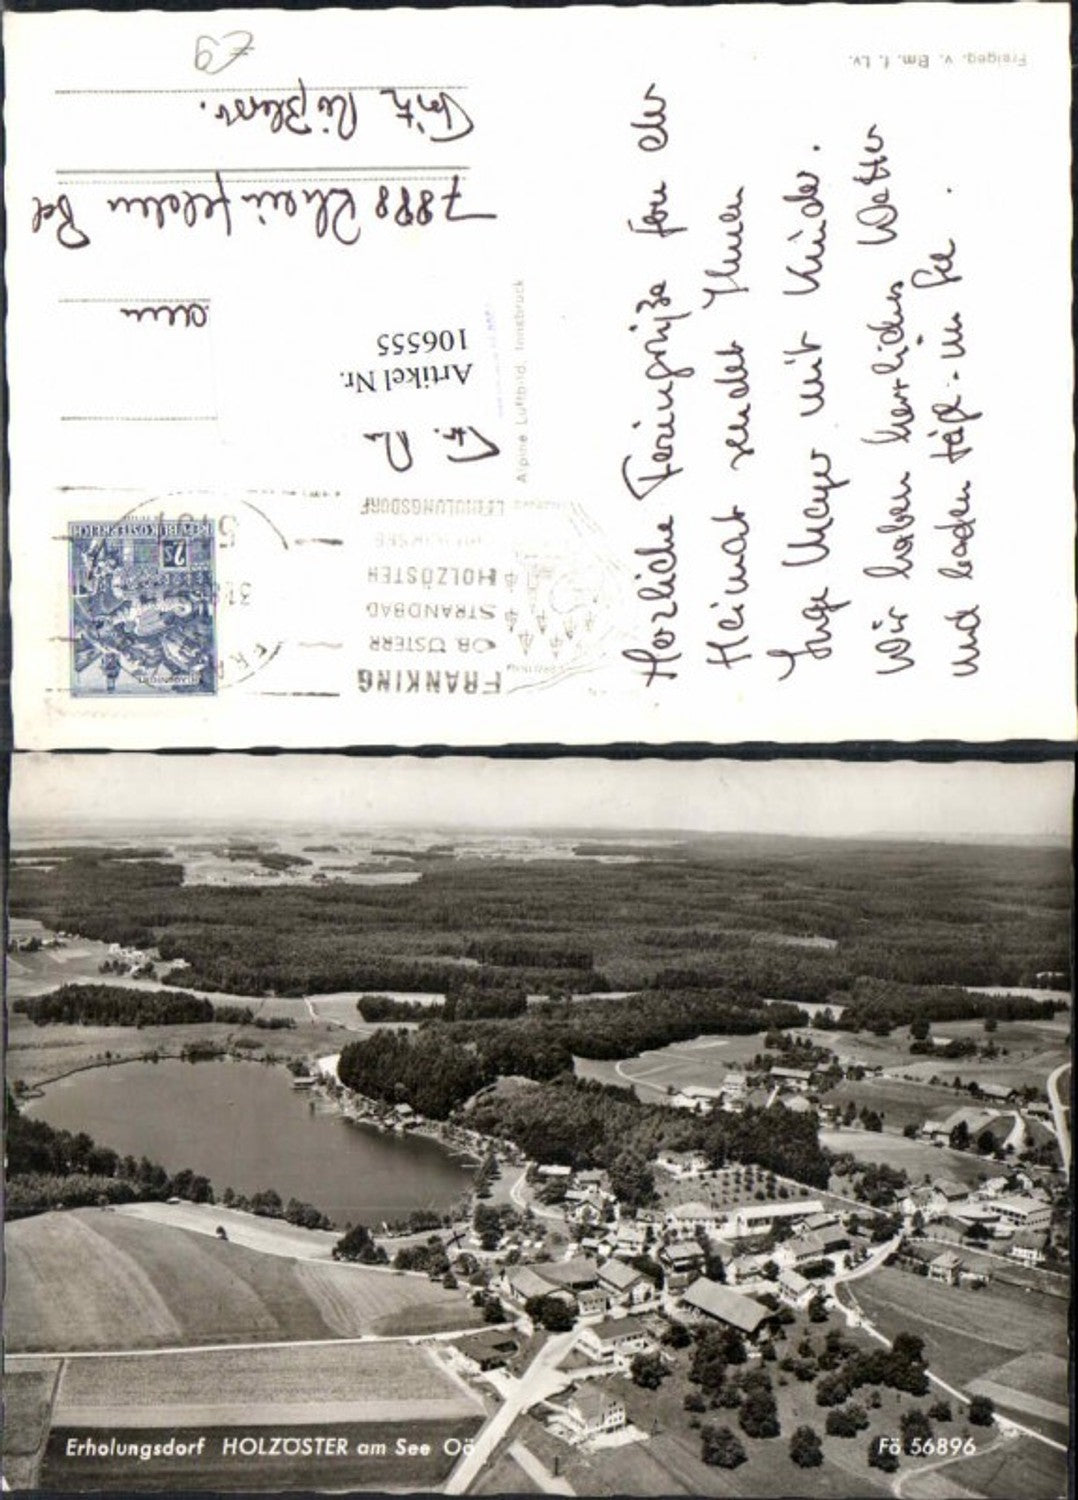 Freigeg. v. Bm. f. Lv.
Herzliche Feriengrüße von der
Heimat sendet Ihnen
Inge Mayer mit Kinder.
Wir haben herrliches Wetter
und baden tägl. im See.
Alpine Luftbild, Innsbruck
FRANKING
OB. ÖSTERR
STRANDBAD
HOLZÖSTER
ERHOLUNGSDORF
REPUBLIK ÖSTERREICH
Artikel Nr.
106555
7888 Rheinfelden Bd
Fritz
€ 9
Erholungsdorf HOLZÖSTER am See OÖ
Fö 56896